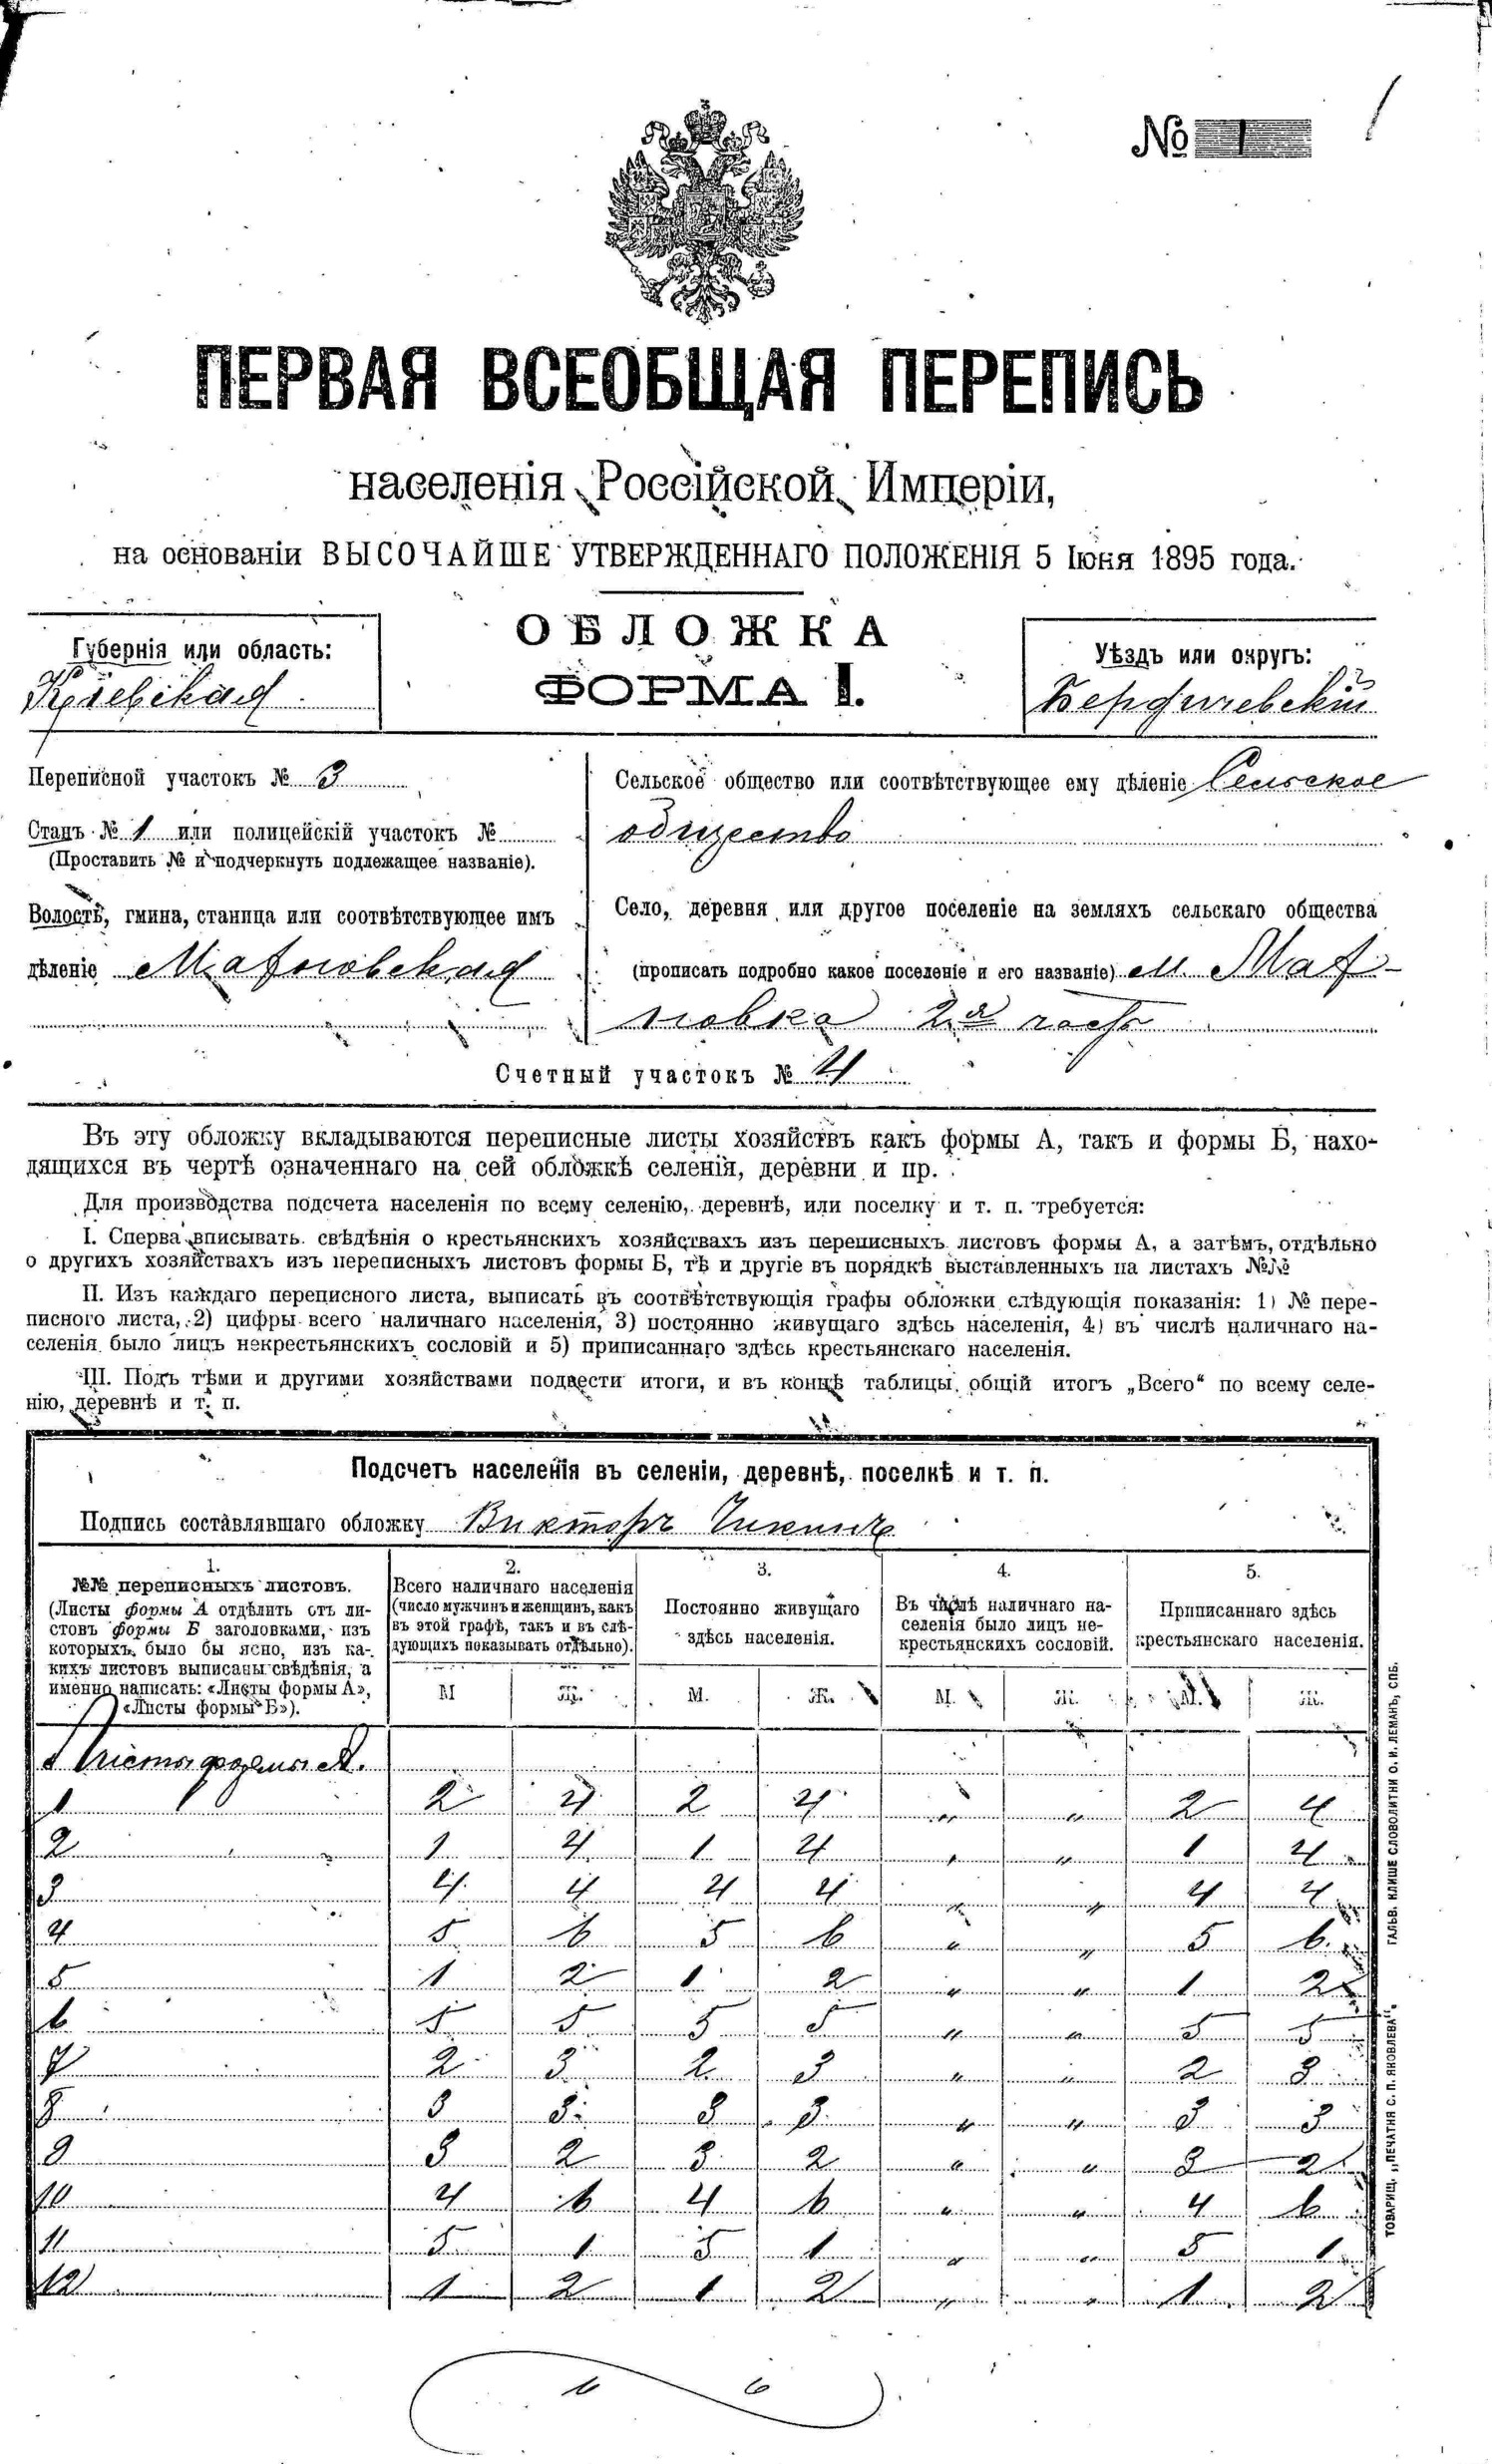 № 1
ПЕРВАЯ ВСЕОБЩАЯ ПЕРЕПИСЬ
населенія Россійской Имперіи,
на основаніи ВЫСОЧАЙШЕ УТВЕРЖДЕННАГО ПОЛОЖЕНІЯ 5 Іюня 1895 года.
ОБЛОЖКА
ФОРМА I.
Губернія или область:
Кіевская
Уѣздъ или округъ:
Бердичевскій
Переписной участокъ № 3
Станъ № 1 или полицейскій участокъ №
(Проставить № и подчеркнуть подлежащее названіе).
Волость, гмина, станица или соотвѣтствующее имъ
дѣленіе Махновская
Сельское общество или соотвѣтствующее ему дѣленіе Сельское
общество
Село, деревня или другое поселеніе на земляхъ сельскаго общества
(прописать подробно какое поселеніе и его названіе) м. Мах-
новка 2я часть
Счетный участокъ № 4
Въ эту обложку вкладываются переписные листы хозяйствъ какъ формы А, такъ и формы Б, нахо-
дящихся въ чертѣ означеннаго на сей обложкѣ селенія, деревни и пр.
Для производства подсчета населенія по всему селенію, деревнѣ, или поселку и т. п. требуется:
I. Сперва вписывать свѣдѣнія о крестьянскихъ хозяйствахъ изъ переписныхъ листовъ формы А, а затѣмъ, отдѣльно
о другихъ хозяйствахъ изъ переписныхъ листовъ формы Б, тѣ и другіе въ порядкѣ выставленныхъ на листахъ №№
II. Изъ каждаго переписного листа, выписать въ соотвѣтствующія графы обложки слѣдующія показанія: 1) № пере-
писного листа, 2) цифры всего наличнаго населенія, 3) постоянно живущаго здѣсь населенія, 4) въ числѣ наличнаго на-
селенія было лицъ некрестьянскихъ сословій и 5) приписаннаго здѣсь крестьянскаго населенія.
III. Подъ тѣми и другими хозяйствами подвести итоги, и въ концѣ таблицы общій итогъ „Всего“ по всему селе-
нію, деревнѣ и т. п.
Подсчетъ населенія въ селеніи, деревнѣ, поселкѣ и т. п.
Подпись составлявшаго обложку Викторъ Чикинъ
1.
№№ переписныхъ листовъ.
(Листы формы А отдѣлить отъ ли-
стовъ формы Б заголовками, изъ
которыхъ было бы ясно, изъ ка-
кихъ листовъ выписаны свѣдѣнія, а
именно написать: «Листы формы А»,
«Листы формы Б»).
2.
Всего наличнаго населенія
(число мужчинъ и женщинъ, какъ
въ этой графѣ, такъ и въ слѣ-
дующихъ показывать отдѣльно).
3.
Постоянно живущаго
здѣсь населенія.
4.
Въ числѣ наличнаго на-
селенія было лицъ не-
крестьянскихъ сословій.
5.
Приписаннаго здѣсь
крестьянскаго населенія.
М Ж. М. Ж. М. Ж. М. Ж.
Листы формы А.
1 2 4 2 4 " " 2 4
2 1 4 1 4 " " 1 4
3 4 4 4 4 " " 4 4
4 5 6 5 6 " " 5 6
5 1 2 1 2 " " 1 2
6 5 5 5 5 " " 5 5
7 2 3 2 3 " " 2 3
8 3 3 3 3 " " 3 3
9 3 2 3 2 " " 3 2
10 4 6 4 6 " " 4 6
11 5 1 5 1 " " 5 1
12 1 2 1 2 " " 1 2
ТОВАРИЩ. „ПЕЧАТНЯ С. П. ЯКОВЛЕВА“. ГАЛЬВ. КЛИШЕ СЛОВОЛИТНИ О. И. ЛЕМАНЪ, СПБ.